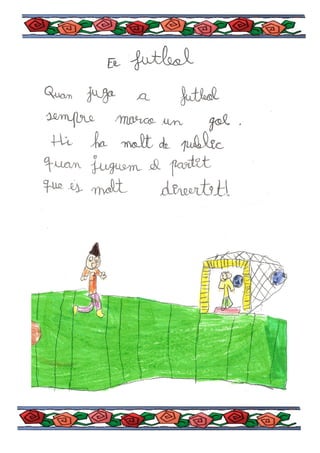 El futbol
Quan juga a futbol
sempre marco un gol.
Hi ha molt de public
quan juguem el partit
que és molt divertit!